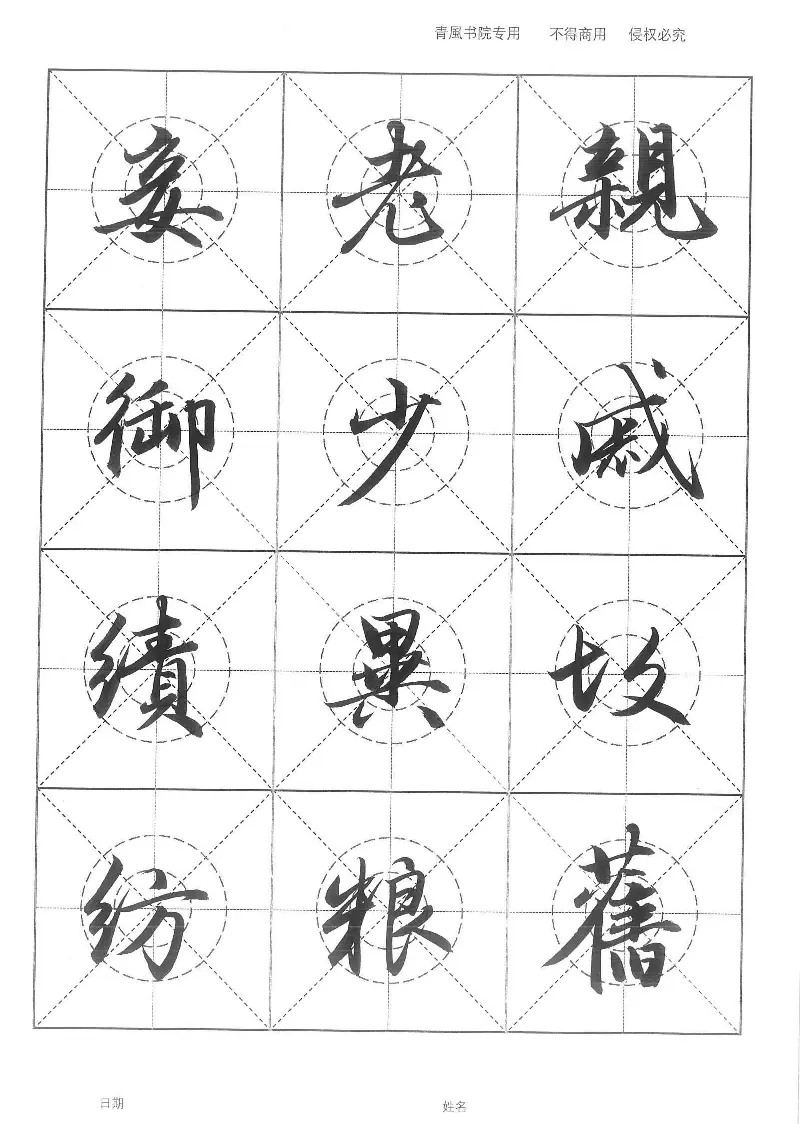 青風书院专用 不得商用 侵权必究
親戚故舊
老少異粮
妾御績纺
日期 姓名